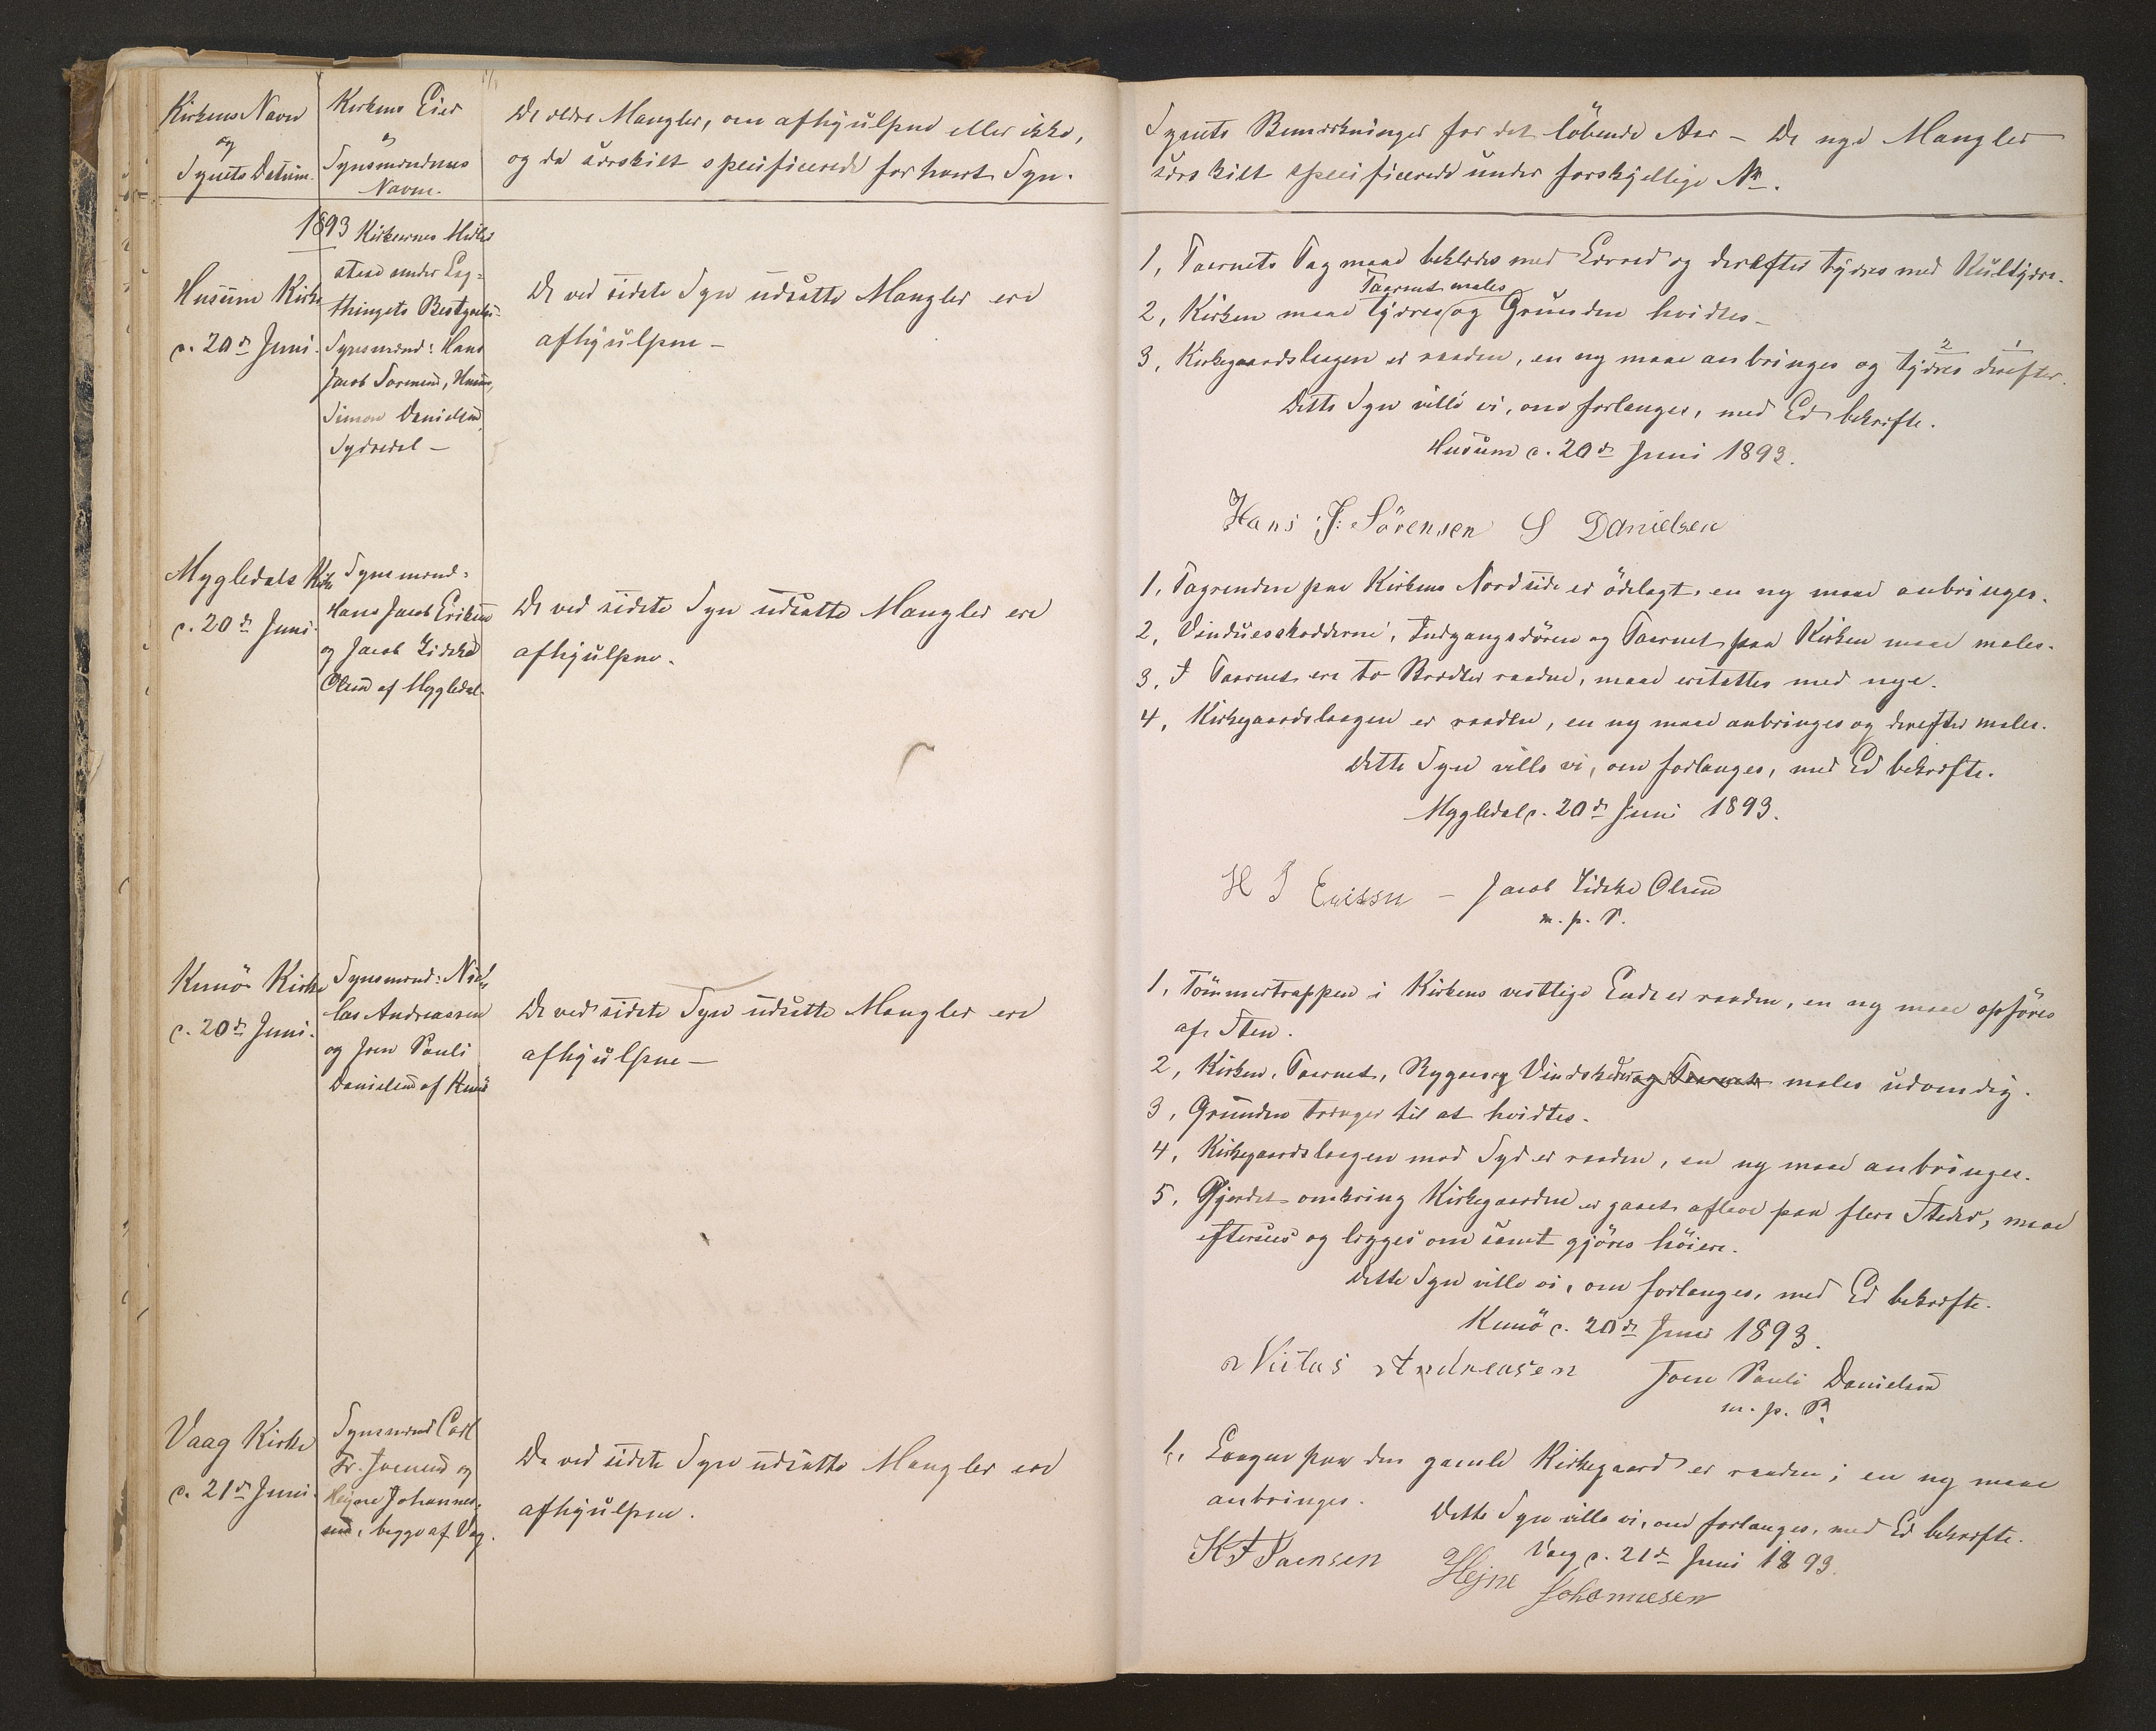 Kirkens Navn
og
Synets Datum.
Kirkens Eier
&
Synsmændenes
Navne.
De ældre Mangler, om afhjulpne eller ikke,
og da særskilt specificerede for hvert Syn.
1893
Husum Kirke
d. 20de Juni.
Kirkernes Midler
staae under Lag=
thingets Bestyrelse.
Synsmænd: Hans
Jacob Sørensen, Husum,
Simon Danielsen,
Sydredal —
De ved sidste Syn udsatte Mangler ere
afhjulpne —
Mygledals Kirke
d. 20de Juni.
Synsmænd:
Hans Jacob Eriksen
og Jacob Zidske
Olsen af Mygledal.
De ved sidste Syn udsatte Mangler ere
afhjulpne.
Kunö Kirke
d. 20de Juni.
Synsmænd: Nick
las Andreassen
og Joen Pauli
Danielsen af Kunö
De ved sidste Syn udsatte Mangler ere
afhjulpne —
Vaag Kirke
d. 21de Juni.
Synsmænd Carl
Fr. Joensen og
Hejne Johannes=
sen, begge af Vaag.
De ved sidste Syn udsatte Mangler ere
afhjulpne.
Synets Bemærkninger for det löbende Aar — De nye Mangler
særskilt specificerede under forskjellige Nr.
1, Taarnets Tag maae beklædes med Lærred og derefter tjæres med Kultjære.
Taarnet males
2, Kirken maae tjæres og Grunden hvidtes —
2 1
3, Kirkegaardslaagen er raaden, en ny maae anbringes og tjæres derefter.
Dette Syn ville vi, om forlanges, med Ed bekræfte.
Husum d. 20de Juni 1893.
Hans J: Sörensen S Danielsen
1, Tagrenden paa Kirkens Nordside er ödelagt, en ny maae anbringes.
2, Vinduesskodderne, Indgangsdören og Taarnet paa Kirken maae males.
3, I Taarnet ere to Brædter raadne, maae erstattes med nye.
4, Kirkegaardslaagen er raaden, en ny maae anbringes og derefter males.
Dette Syn ville vi, om forlanges, med Ed bekræfte.
Mygledal d. 20de Juni 1893.
H J Eriksen — Jacob Zidske Olsen
m. p. P.
1, Tömmertrappen i Kirkens vestlige Ende er raaden, en ny maae opföres
af Sten.
2, Kirken, Taarnet, Rygaas og Vindskeder og Taarnet males udvendig.
3, Grunden trænger til at hvidtes.
4, Kirkegaardslaagen mod Syd er raaden, en ny maae anbringes.
5, Gjerdet omkring Kirkegaarden er gaaet aflave paa flere Steder, maae
efterses og lægges om samt gjöres höiere.
Dette Syn ville vi, om forlanges, med Ed bekræfte.
Kunö d. 20de Juni 1893.
Niclas Andreasen Joen Pauli Danielsen
m. p. P.
1, Laagen paa den gamle Kirkegaard er raaden; en ny maae
anbringes.
Dette Syn ville vi, om forlanges, med Ed bekræfte.
Vaag d. 21de Juni 1893.
K F Joensen Hejne Johannesen